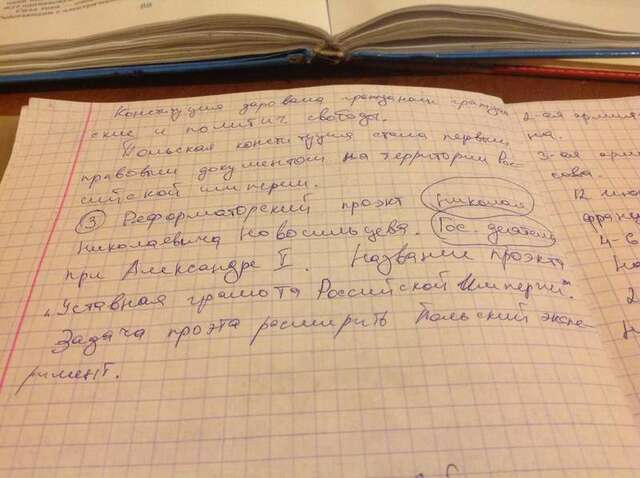 Конституция даровала гражданам граждан
ские и политич свободы.
Польская конституция стала первым
правовым документом на территории Рос
сийской империи.
③ Реформаторский проэкт Николая
Николаевича Новосильцева. Гос. деятель
при Александре I. Название проэкта
„Уставная грамота Российской Империи".
Задача проэта расширить Польский экспе-
римент.
2-ая армия
на.
3-ая арм
сова
12 июн
франц
4-6
На
2